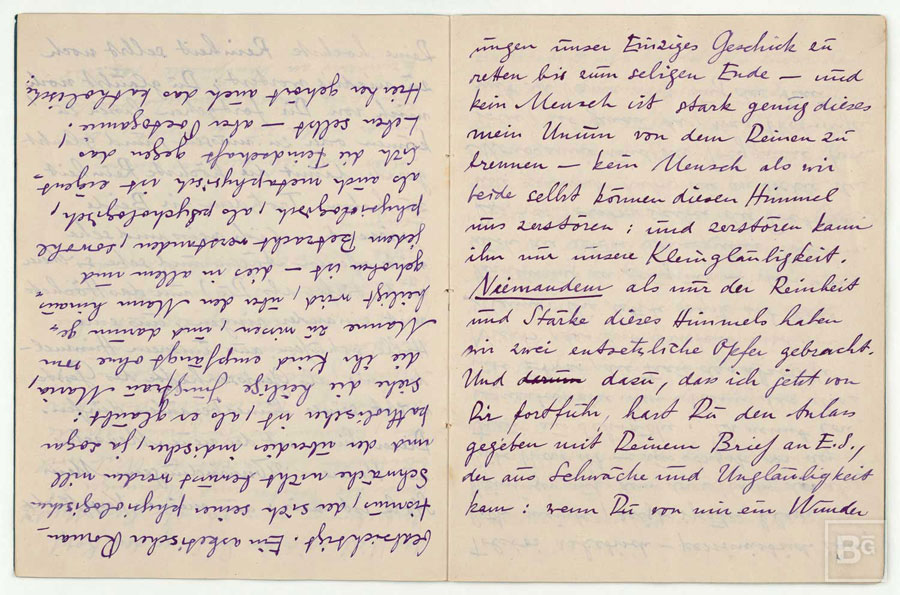 beabsichtigt. Ein asketischer Roman-
tismus, der sich seiner physiologischen
Schwäche nicht bewusst werden will
und der überdies indischer, ja sogar
katholischer ist, als er glaubt:
siehe die heilige Jungfrau Maria,
die ihr Kind empfängt ohne vom
Manne zu wissen und darum ge-
heiligt wird, über den Mann hinaus-
gehoben ist – dies in allem und
jedem Betracht verstanden, sowohl
physiologisch, als psychologisch,
als auch metaphysisch ist eigent-
lich die Feindschaft gegen das
Leben selbst – aber
Hierher gehört auch das katholische
ungen unser Einziges Geschick zu
retten bis zum seligen Ende – und
kein Mensch ist stark genug dieses
mein Unum von dem Deinen zu
trennen – kein Mensch als wir
beide selbst können diesen Himmel
uns zerstören: und zerstören kann
ihn nur unsere Kleingläubigkeit.
Niemandem als nur der Reinheit
und Stärke dieses Himmels haben
wir zwei entsetzliche Opfer gebracht.
Und darum dazu, dass ich jetzt von
Dir fortfuhr, hast Du den Anlass
gegeben mit Deinem Brief an E.S.,
der aus Schwäche und Ungläubigkeit
kam: wenn Du von mir ein Wunder
BG